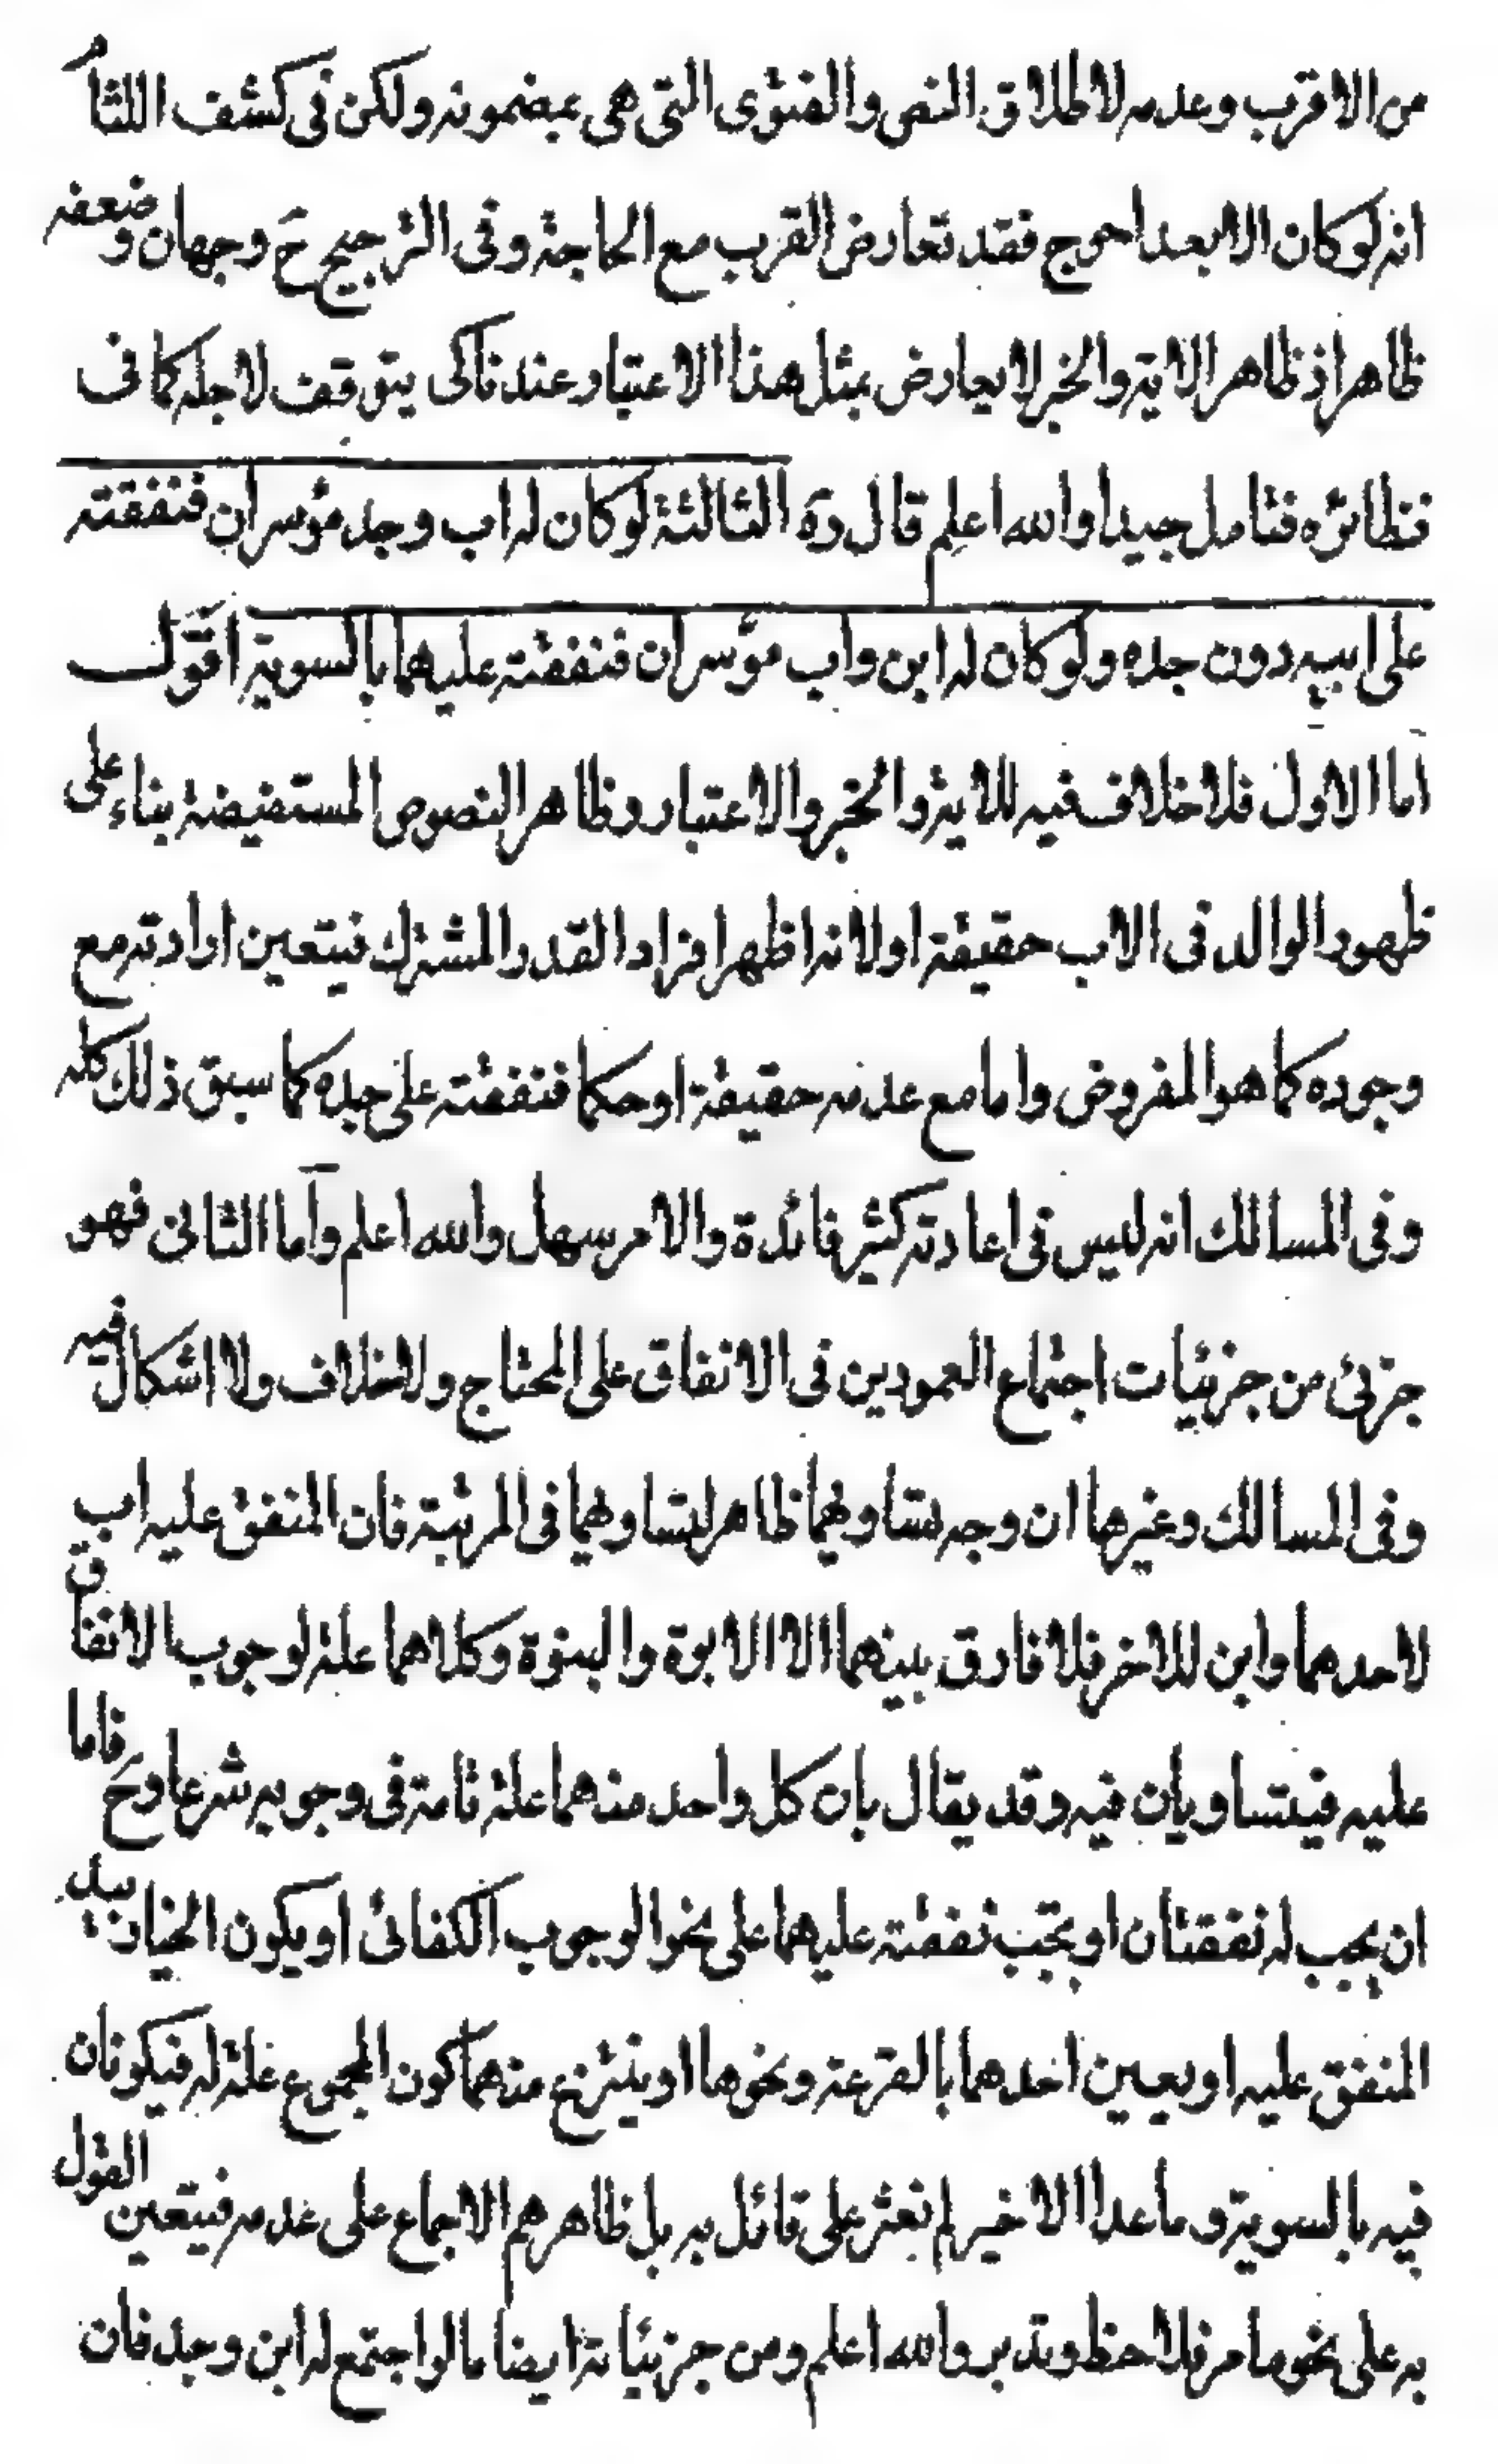 من الاقرب وعدمه لاطلاق النص والفتوى التي هي عبضمونه ولكن في كشف اللثام
انه لو كان الابعد احوج فقد تعارض القرب مع الحاجة وفى الترجيح ح وجهان وضعفه
ظاهر اذ ظاهر الاية والخبر لا يعارض بمثل هذا الاعتبار عندنا كى يتوقف لاجله كما فى
نظائره فتامل جيدا والله اعلم قال ره الثالثة لو كان له اب وجد مؤسران فنفقته
على ابيه دون جده ولو كان له ابن واب مؤسران فنفقته عليهما بالسوية اقول
اما الاول فلا خلاف فيه للاية والخبر والاعتبار وظاهر النصوص المستفيضة بناء على
ظهور الوالد فى الاب حقيقة اولا نه اظهر افراد القدر المشترك فيتعين ارادته مع
وجوده كما هو المفروض واما مع عدمه حقيقة او حكما فنفقته على جده كما سبق ذلك كله
وفى المسالك انه ليس فى اعادته كثير فائدة والامر سهل والله اعلم واما الثانى فهو
جزئ من جزئيات اجتماع العمودين فى الانفاق على المحتاج ولا خلاف ولا اشكال فيه
وفى المسالك وغيرها ان وجه تساويهما ظاهر لتساويهما فى المرتبة فان المنفق عليه اب
لاحدهما وابن للاخر فلا فارق بينهما الا الابوة والبنوة وكلاهما علة لوجوب الانفاق
عليه فيتساويان فيه وقد يقال بان كل واحد منهما علة تامة فى وجوبه شرعا وح فاما
ان يجب له نفقتان او تجب نفقته عليهما على نحو الوجوب الكفائى او يكون الخيار بيد
المنفق عليه او يعين احدهما بالقرعة ونحوها او ينتزع منهما كون المجموع علة له فيكونان
فيه بالسوية وما عدا الاخير لم نعثر على قائل به بل ظاهرهم الاجماع على عدمه فيتعين القول
به على نحو ما مر فلاحظ وتدبر والله اعلم ومن جزئياته ايضا ما لو اجتمع له ابن وجد فان